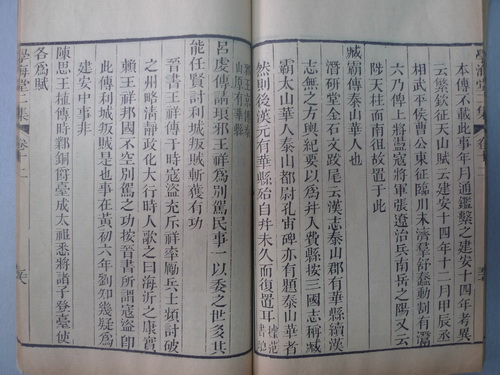 學海堂二集 卷十二
本傳不載此事年月通鑑繫之建安十四年考異
云繁欽征天山賦云建安十四年十二月甲辰丞
相武平侯曹公東征臨川未濟羣舒蠢動割有灊
六乃俾上將盪寇將軍張遼治兵南岳之陽又云
陟天柱而南徂故置于此
臧霸傳泰山華人也
潛研堂金石文跋尾云漢志泰山郡有華縣續漢
志無之方輿紀要以為并入費縣按三國志稱臧
霸太山華人泰山都尉孔宙碑亦有題泰山華者
然則後漢元有華縣始自并未久而復置耳
山原有華縣
呂虔傳請琅邪王祥為別駕民事一以委之世多其
能任賢討利城叛賊斬獲有功
晉書王祥傳于時寇盜充斥祥率勵兵士頻討破
之州略清靜政化大行時人歌之曰海沂之康實
賴王祥邦國不空別駕之功按晉書所謂寇盜卽
此傳利城叛賊是也事在黃初六年劉知幾疑為
建安中事非
陳思王植傳時鄴銅爵臺成太祖悉將諸子登臺使
各為賦
學海堂二集 卷十二